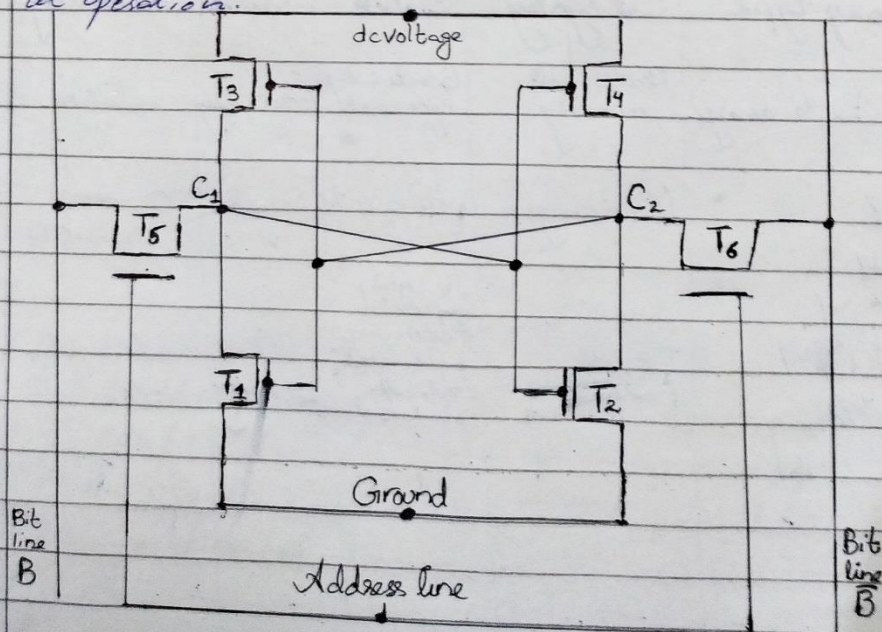 operation.
dcvoltage
T3
T4
C1
C2
T5
T6
T1
T2
Ground
Bit
line
B
Address line
Bit
line
B̅